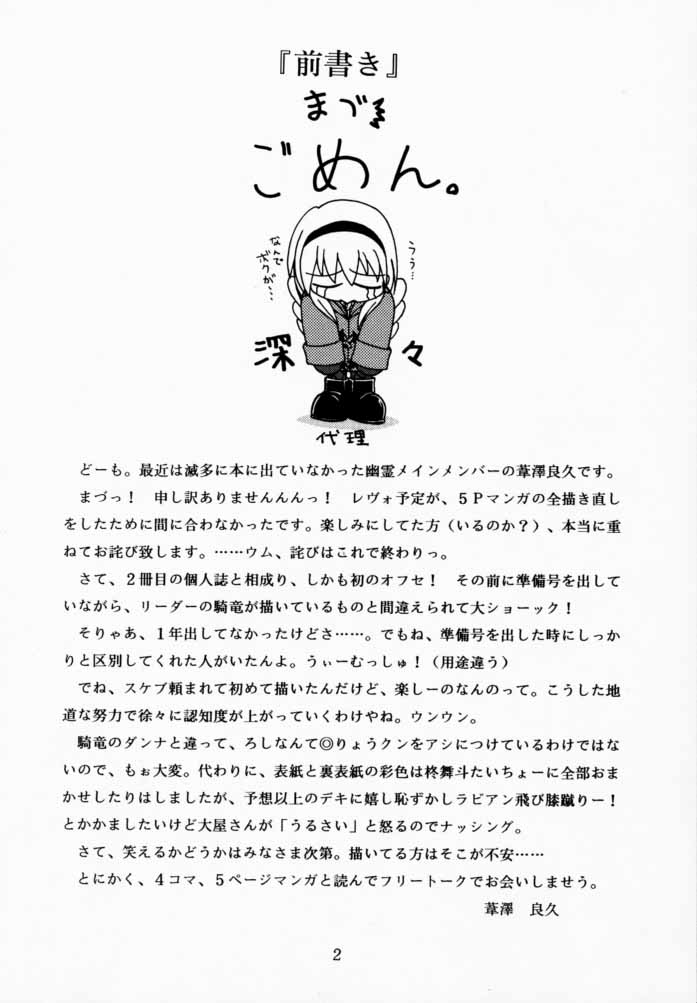 『前書き』
まづ
ごめん。
うぅ…
なんで
ボクが…
深々
代理
どーも。最近は滅多に本に出ていなかった幽霊メインメンバーの葦澤良久です。
まづっ！　申し訳ありませんんんっ！　レヴォ予定が、５Ｐマンガの全描き直し
をしたために間に合わなかったです。楽しみにしてた方（いるのか？）、本当に重
ねてお詫び致します。……ウム、詫びはこれで終わりっ。
さて、２冊目の個人誌と相成り、しかも初のオフセ！　その前に準備号を出して
いながら、リーダーの騎竜が描いているものと間違えられて大ショーック！
そりゃあ、１年出してなかったけどさ……。でもね、準備号を出した時にしっか
りと区別してくれた人がいたんよ。うぃーむっしゅ！（用途違う）
でね、スケブ頼まれて初めて描いたんだけど、楽しーのなんのって。こうした地
道な努力で徐々に認知度が上がっていくわけやね。ウンウン。
騎竜のダンナと違って、ろしなんて◎りょうクンをアシにつけているわけではな
いので、もぉ大変。代わりに、表紙と裏表紙の彩色は柊舞斗たいちょーに全部おま
かせしたりはしましたが、予想以上のデキに嬉し恥ずかしラビアン飛び膝蹴りー！
とかかましたいけど大屋さんが「うるさい」と怒るのでナッシング。
さて、笑えるかどうかはみなさま次第。描いてる方はそこが不安……
とにかく、４コマ、５ページマンガと読んでフリートークでお会いしませう。
葦澤　良久
2